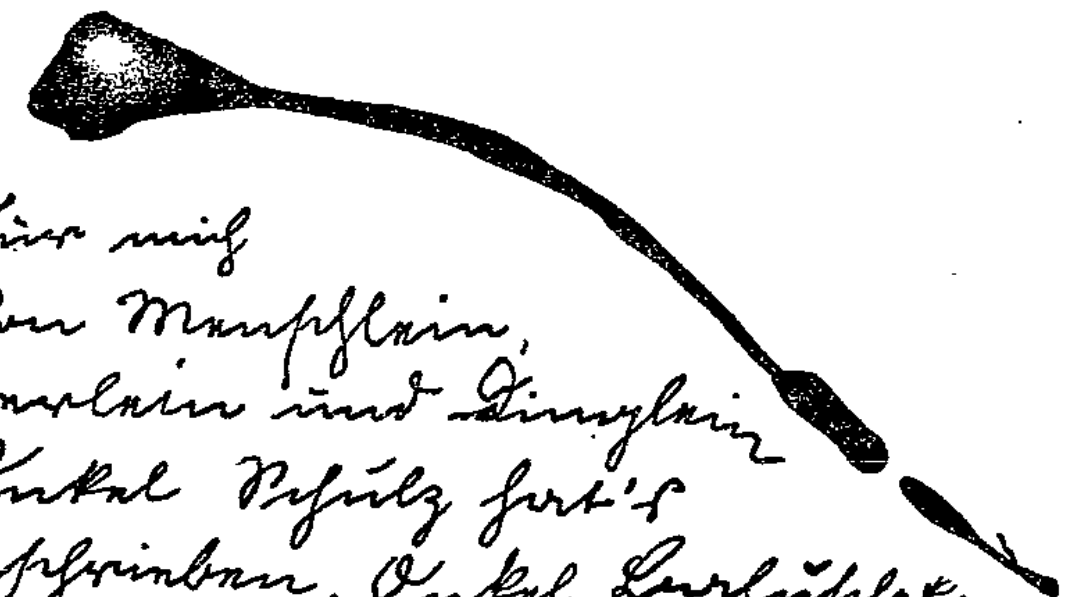 für mich
on Menschlein,
erlein und Dinglein
Onkel Schulz hat's
schrieben. Onkel